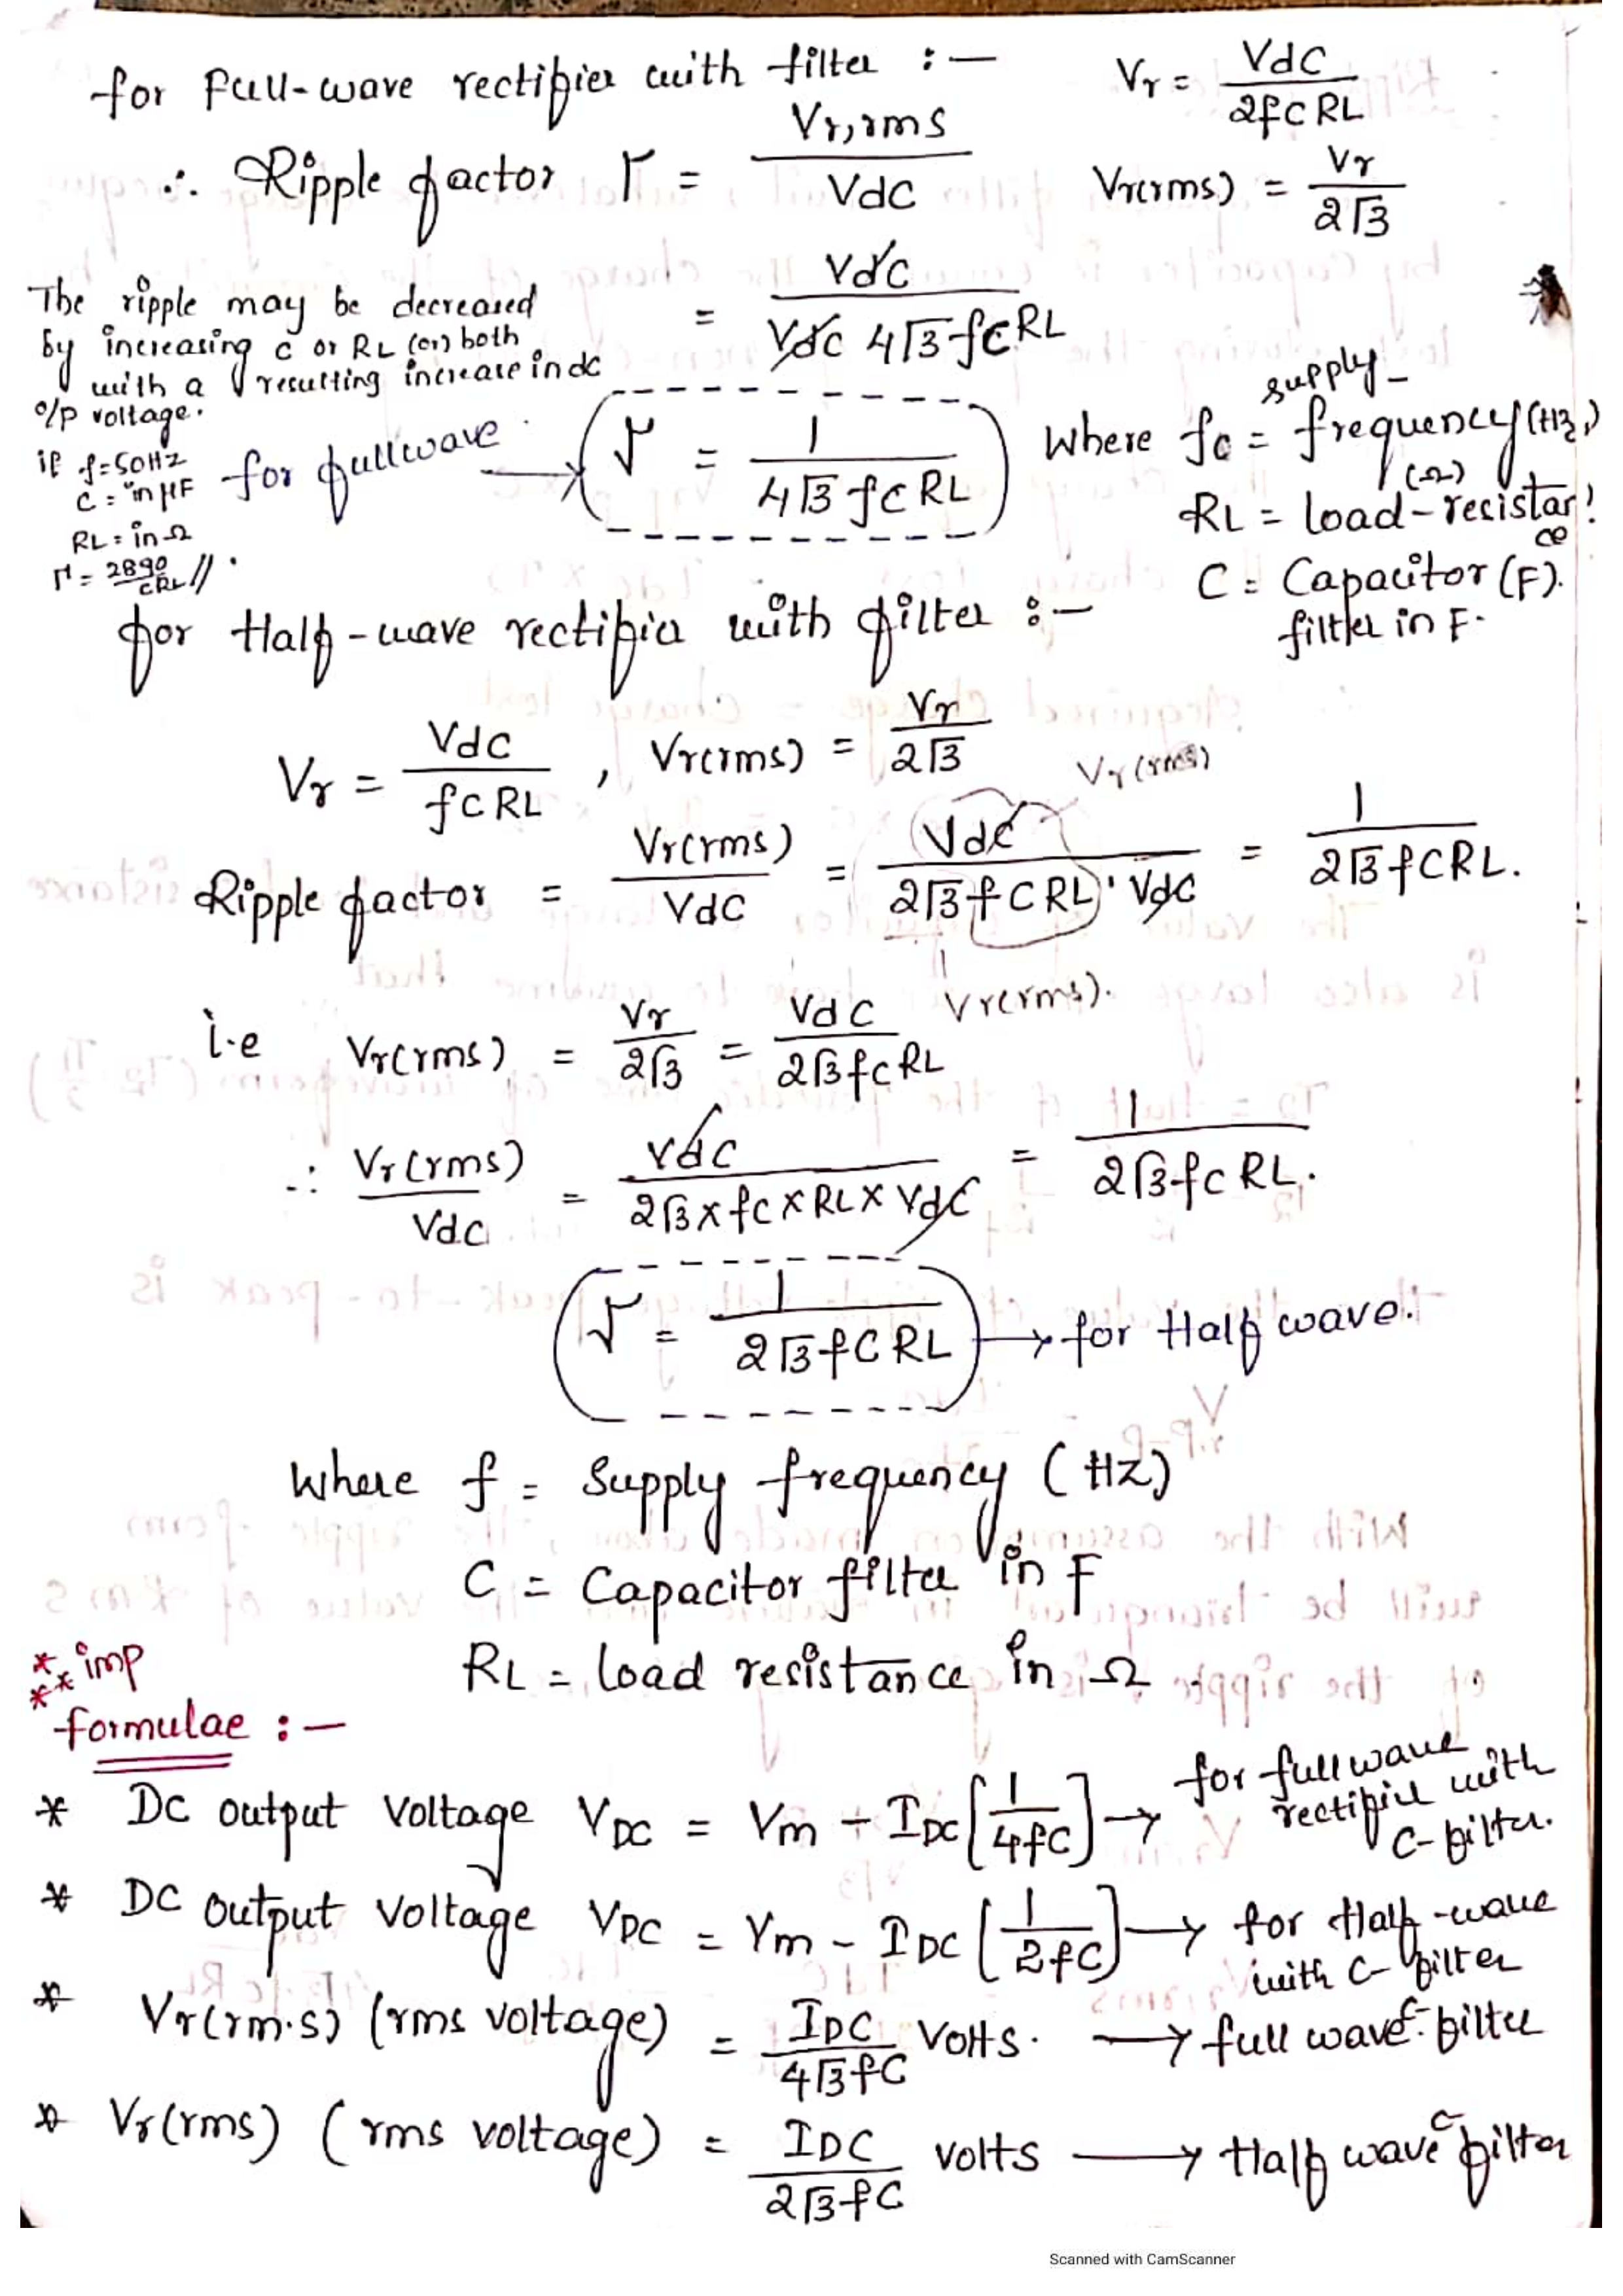 for Full-wave rectifier with filter :-
Vr = Vdc / 2fCRL
∴ Ripple factor Γ = Vr,rms / Vdc
Vr(rms) = Vr / 2√3
= Vdc / Vdc 4√3 fCRL
The ripple may be decreased
by increasing C or RL (or) both
with a resulting increase in dc
o/p voltage.
if f=50Hz
C = in μF
RL = in Ω
Γ = 2890 / CRL //.
for fullwave → Γ = 1 / 4√3 fCRL
Where fc = supply frequency (Hz)
RL = load-resistance (Ω)
C = Capacitor (F).
filter in F.
for Half-wave rectifier with filter :-
Vr = Vdc / fCRL , Vr(rms) = Vr / 2√3
Vr(rms)
Ripple factor = Vr(rms) / Vdc = Vdc / 2√3 fCRL · Vdc = 1 / 2√3 fCRL.
Vr(rms).
i.e Vr(rms) = Vr / 2√3 = Vdc / 2√3 fCRL
∴ Vr(rms) / Vdc = Vdc / 2√3 x fC x RL x Vdc = 1 / 2√3 fCRL.
Γ = 1 / 2√3 fCRL → for Half wave.
Where f = Supply frequency (Hz)
C = Capacitor filter in F
RL = load resistance in Ω
**** imp
formulae :-
* DC output voltage VDC = Vm - IDC [1 / 4fC] → for full wave rectifier with C-filter.
* DC output voltage VDC = Vm - IDC [1 / 2fC] → for Half-wave with C-filter
* Vr(rm.s) (rms voltage) = IDC / 4√3 fC Volts. → full wave C-filter
* Vr(rms) (rms voltage) = IDC / 2√3 fC volts → Half wave C-filter
Scanned with CamScanner